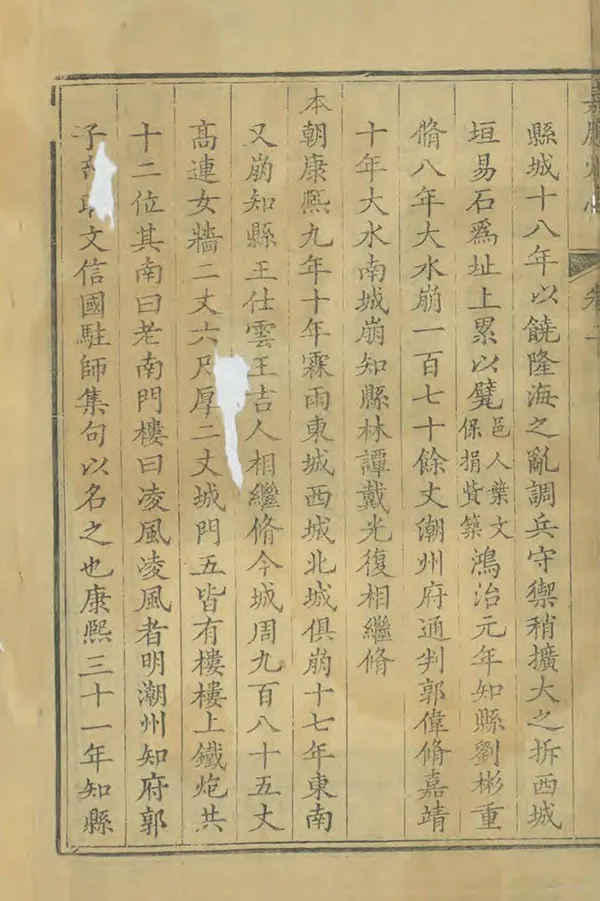 嘉應州
卷二
縣城十八年以饒隆海之亂調兵守禦稍擴大之拆西城
垣易石爲址上累以甓邑人葉文保捐貲築鴻治元年知縣劉彬重
脩八年大水崩一百七十餘丈潮州府通判郭偉脩嘉靖
十年大水南城崩知縣林譚戴光復相繼脩
本朝康熙九年十年霖雨東城西城北城俱崩十七年東南
又崩知縣王仕雲王吉人相繼脩今城周九百八十五丈
高連女牆二丈六尺厚二丈城門五皆有樓樓上鐵炮共
十二位其南曰老南門樓曰凌風凌風者明潮州知府郭
子章取文信國駐師集句以名之也康熙三十一年知縣